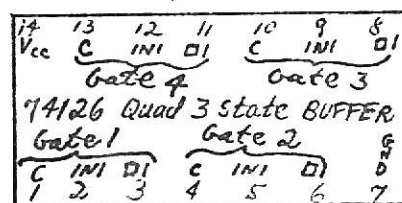 14 13 12 11 10 9 8
Vcc C IN1 O1 C IN1 O1
Gate 4 Gate 3
74126 Quad 3 State BUFFER
Gate 1 Gate 2
GND
C IN1 O1 C IN1 O1
1 2 3 4 5 6 7